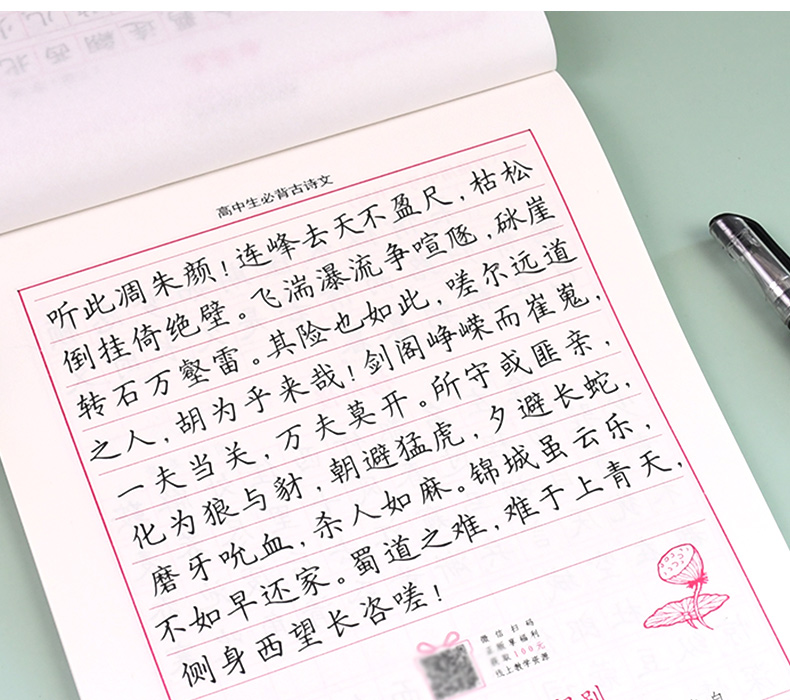 高中生必背古诗文
听此凋朱颜！连峰去天不盈尺，枯松
倒挂倚绝壁。飞湍瀑流争喧豗，砯崖
转石万壑雷。其险也如此，嗟尔远道
之人，胡为乎来哉！剑阁峥嵘而崔嵬，
一夫当关，万夫莫开。所守或匪亲，
化为狼与豺，朝避猛虎，夕避长蛇，
磨牙吮血，杀人如麻。锦城虽云乐，
不如早还家。蜀道之难，难于上青天，
侧身西望长咨嗟！
微信扫码
享福利
领取100元
线上教学资源